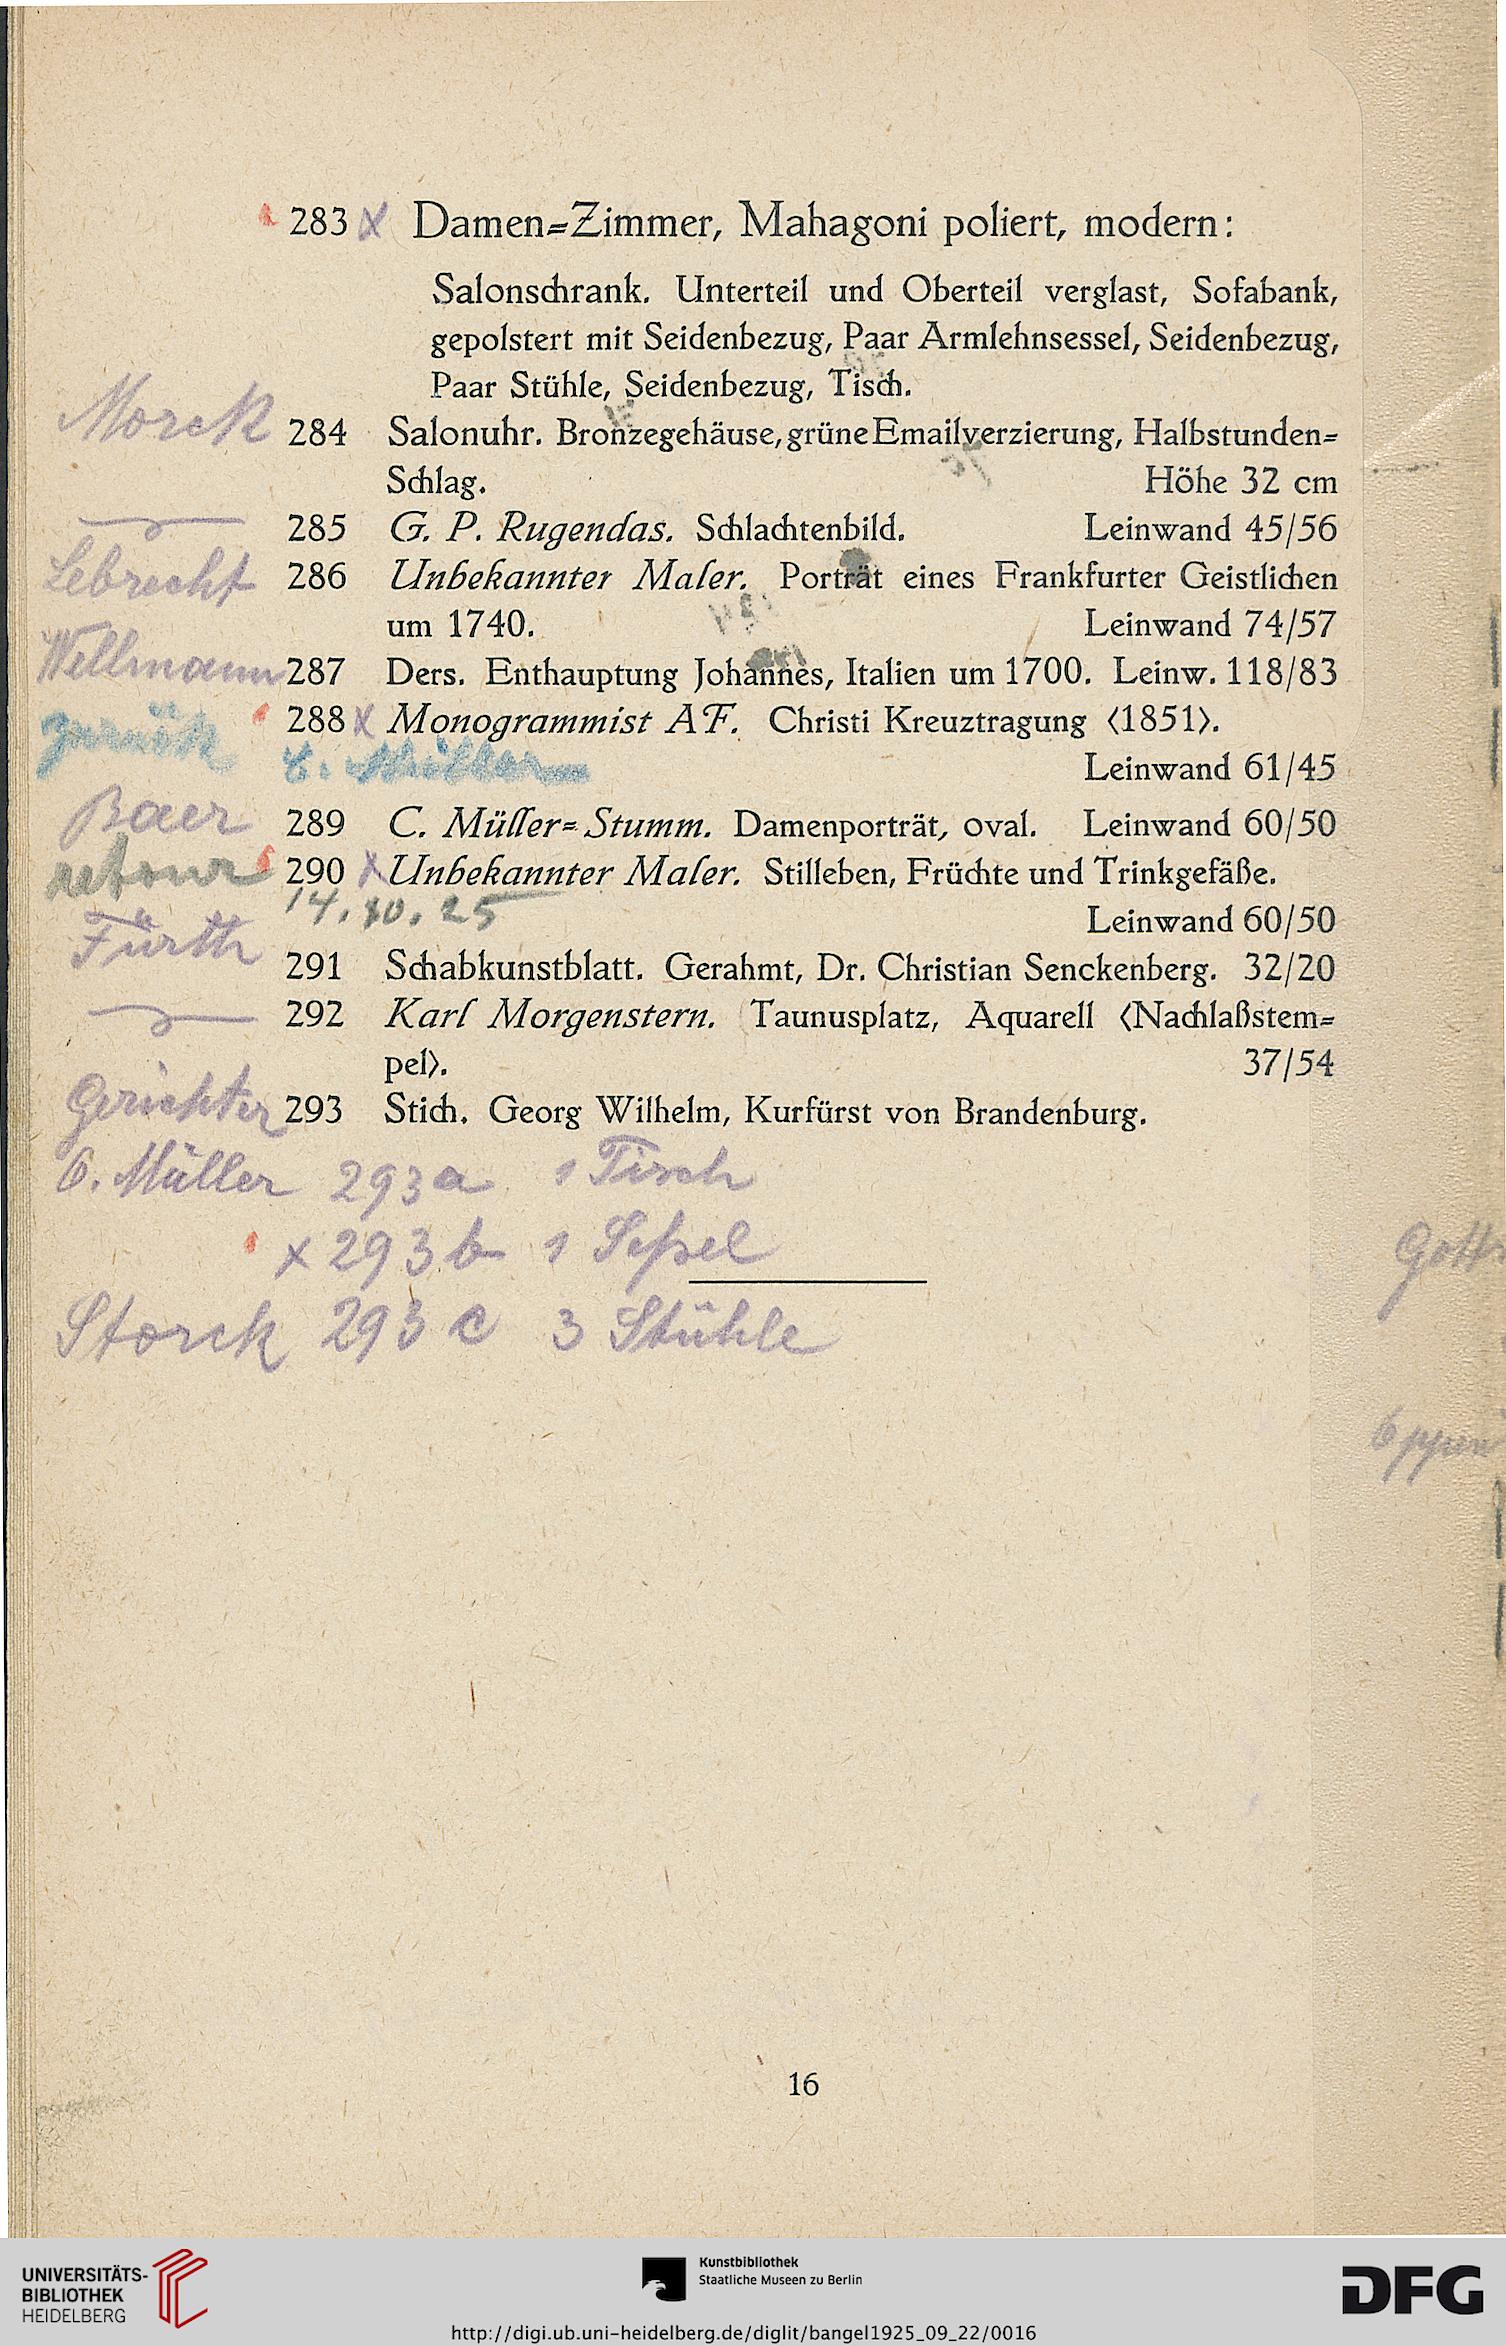 283 x Damen=Zimmer, Mahagoni poliert, modern:
Salonschrank. Unterteil und Oberteil verglast, Sofabank,
gepolstert mit Seidenbezug, Paar Armlehnsessel, Seidenbezug,
Paar Stühle, Seidenbezug, Tisch.
Morck 284 Salonuhr. Bronzegehäuse, grüne Emailverzierung, Halbstunden=
Schlag. Höhe 32 cm
285 G. P. Rugendas. Schlachtenbild. Leinwand 45/56
Lebrecht 286 Unbekannter Maler. Porträt eines Frankfurter Geistlichen
um 1740. Leinwand 74/57
Wellmann 287 Ders. Enthauptung Johannes, Italien um 1700. Leinw. 118/83
zurück 288 x Monogrammist AF. Christi Kreuztragung <1851>.
Leinwand 61/45
Baer 289 C. Müller=Stumm. Damenporträt, oval. Leinwand 60/50
retour 290 x Unbekannter Maler. Stilleben, Früchte und Trinkgefäße.
14.10.25 Leinwand 60/50
Fürth 291 Schabkunstblatt. Gerahmt, Dr. Christian Senckenberg. 32/20
292 Karl Morgenstern. Taunusplatz, Aquarell <Nachlaßstem=
pel>. 37/54
Gerichter 293 Stich. Georg Wilhelm, Kurfürst von Brandenburg.
Müller 293a 1 Tisch
x 293b 1 Seßel
Storck 293c 3 Stühle
16
UNIVERSITÄTS-
BIBLIOTHEK
HEIDELBERG
Kunstbibliothek
Staatliche Museen zu Berlin
DFG
http://digi.ub.uni-heidelberg.de/diglit/bangel1925_09_22/0016